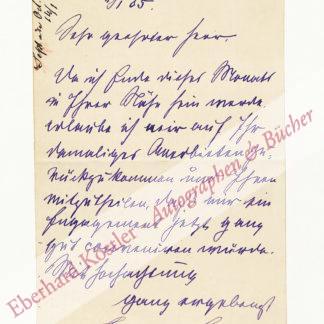 /1 85.
Sehr geehrter Herr.
Da ich Ende dieses Monats
in Ihrer Nähe sein werde
erlaube ich mir auf Ihr
damaliges Anerbieten zu-
rückzukommen und Ihnen
mitzutheilen, dass mir ein
Engagement jetzt ganz
gut conveniren würde.
Mit Hochachtung
ganz ergebenst
Eberhard Köstler Autographen & Bücher